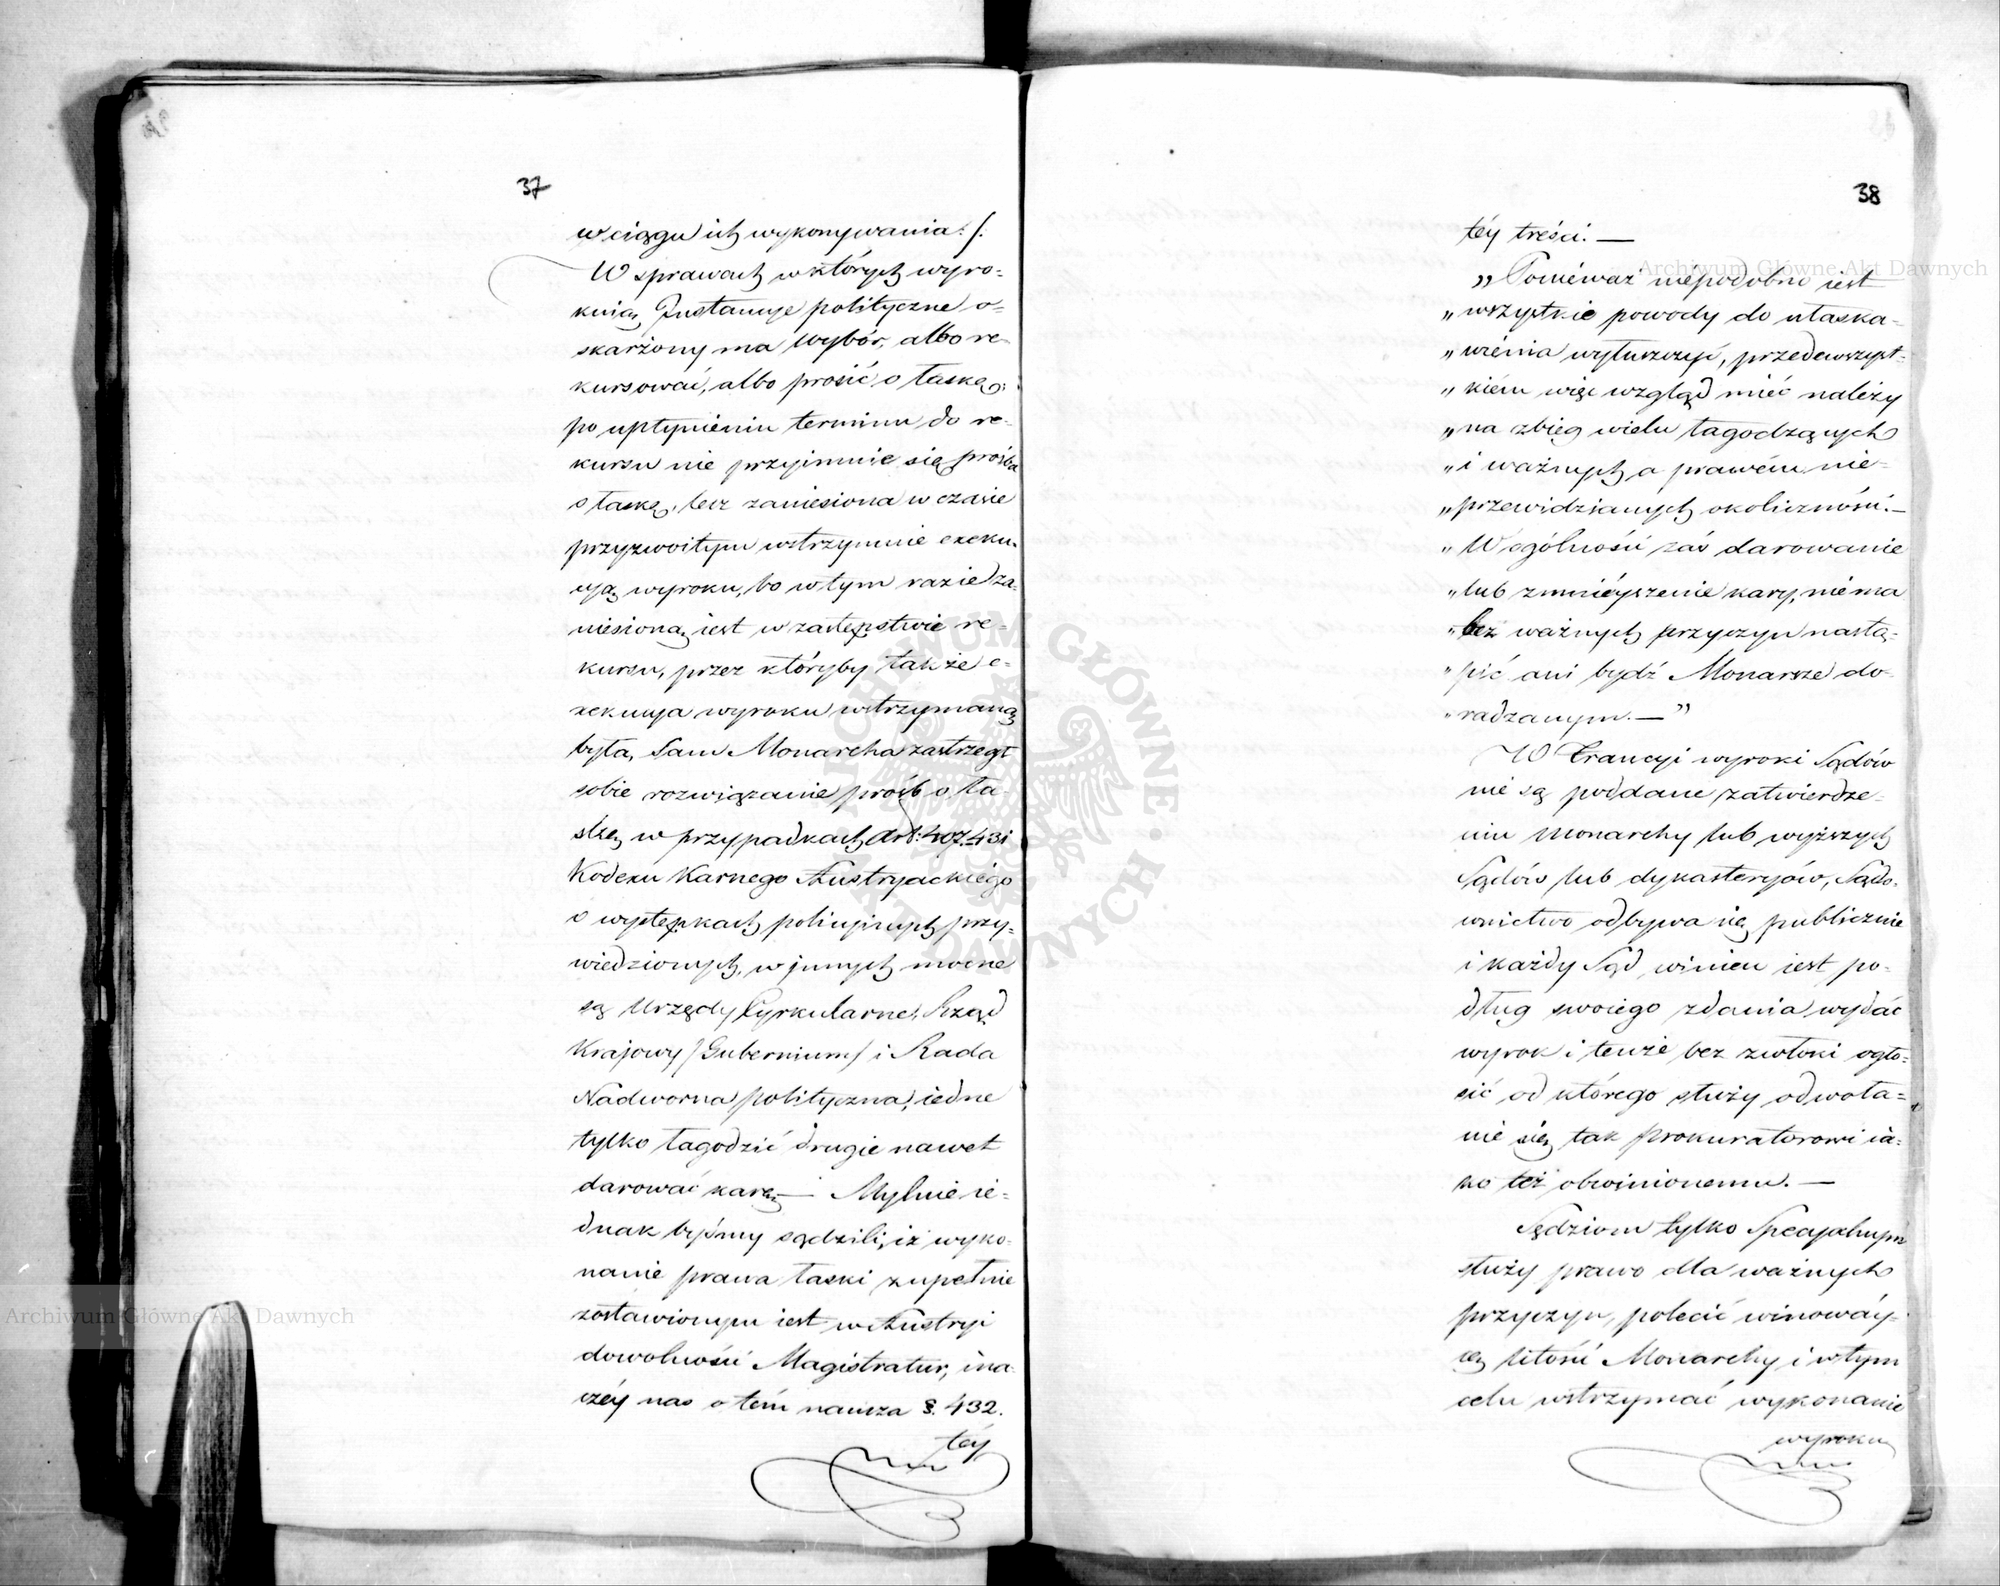 37
w ciągu ich wykonywania :/:
W sprawach w których wyro=
kuią Instancye polityczne o=
skarżony ma wybór, albo re=
kursować, albo prosić o łaskę;
po upłynieniu terminu do re=
kursu nie przyimuie się prośba
o łaskę, lecz zaniesiona w czasie
przyzwoitym wstrzymuie exeku=
cyą wyroku, bo w tym razie za=
niesioną iest w zastępstwie re=
kursu, przez któryby także e=
xekucya wyroku wstrzymaną
była, Sam Monarcha zastrzegł
sobie rozwiązanie próśb o ła=
skę w przypadkach Art: 407.431
Kodexu Karnego Austryackiégo
o występkach policyinych przy=
wiedzionych, w innych mocne
są Urzędy Cyrkularne, Rząd
Krajowy /Gubernium/ i Rada
Nadworna polityczna, iedne
tylko łagodzić drugie nawet
darować karę. — Mylnie ie=
dnak byśmy sądzili, iż wyko=
nanie prawa łaski zupełnie
zostawionym iest w Austryi
dowolności Magistratur, ina=
czéy nas o tém naucza §. 432.
téy
38
téy treści. —
„ Poniéważ niépodobno iest
„ wszystkie powody do ułaska=
„ wiénia wyłuszczyć, przedewszyst=
„ kiém więc wzgląd miéć należy
„ na zbieg wielu łagodzących
„ i ważnych a prawém nie=
„ przewidzianych okoliczności. —
„ W ogólności zaś darowanie
„ lub zmniéyszenie kary, niema
„ bez ważnych przyczyn nastą=
„ pić ani bydź Monarsze do=
„ radzanym. — ”
W Francyi wyroki Sądów
nie są poddane zatwierdze=
niu Monarchy lub wyższych
Sądów lub dykasteryów, Sądo=
wnictwo odbywa się publicznie
i każdy Sąd winien iest po=
dług swoiego zdania wydać
wyrok i tenże bez zwłoki ogło=
sić od którego służy odwoła=
nie się tak prokuratorowi ia=
ko też obwinionemu. —
Sędziom tylko Specyalnym
służy prawo dla ważnych
przyczyn, polecić winowáy=
cę litości Monarchy i w tym
celu wstrzymać wykonanie
wyroku
Archiwum Główne Akt Dawnych
Archiwum Główne Akt Dawnych
ARCHIWUM GŁÓWNE AKT DAWNYCH